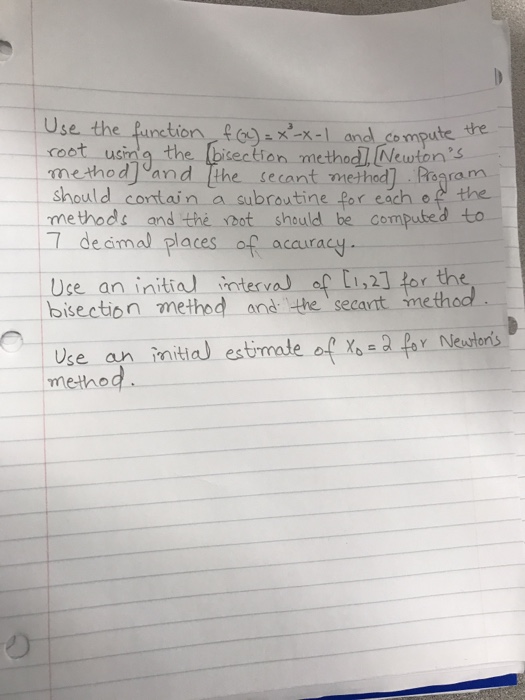 Use the function f(x) = x³-x-1 and compute the
root using the [bisection method], [Newton's
method] and [the secant method]. Program
should contain a subroutine for each of the
methods and the root should be computed to
7 decimal places of accuracy.
Use an initial interval of [1,2] for the
bisection method and the secant method.
Use an initial estimate of X₀ = 2 for Newton's
method.